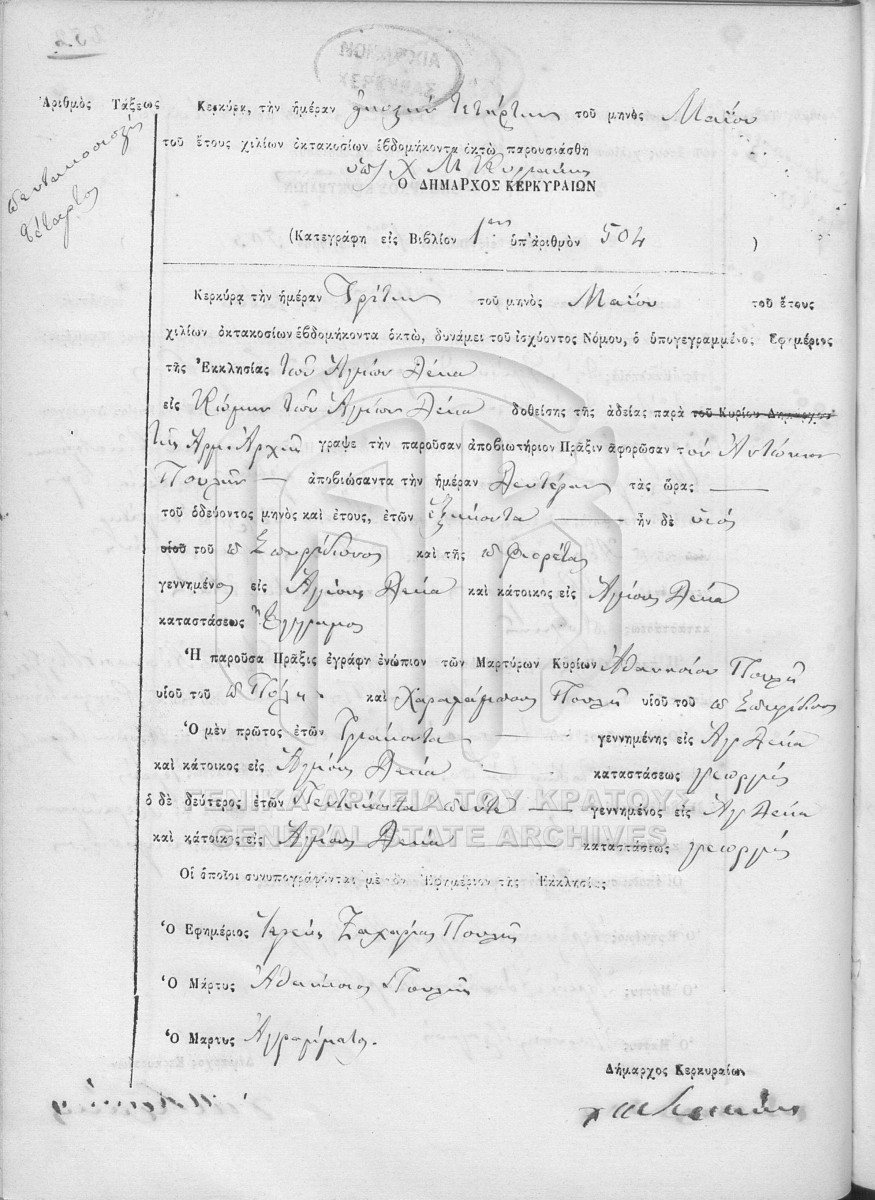 Ἀριθμὸς Τάξεως
πεντακοσιοστὸς
τέταρτος
Κερκύρα, τὴν ἡμέραν εἰκοστὴν τετάρτην τοῦ μηνὸς Μαΐου
τοῦ ἔτους χιλίων ὀκτακοσίων ἑβδομήκοντα ὀκτὼ παρουσιάσθη
Ο ΔΗΜΑΡΧΟΣ ΚΕΡΚΥΡΑΙΩΝ
(Κατεγράφη εἰς Βιβλίον 1ον ὑπ' ἀριθμὸν 504 )
Κερκύρα τὴν ἡμέραν Τρίτην τοῦ μηνὸς Μαΐου τοῦ ἔτους
χιλίων ὀκτακοσίων ἑβδομήκοντα ὀκτὼ, δυνάμει τοῦ ἰσχύοντος Νόμου, ὁ ὑπογεγραμμένος Ἐφημέριος
τῆς Ἐκκλησίας τῶν Ἁγίων Δέκα
εἰς Κώμην τῶν Ἁγίων Δέκα δοθείσης τῆς ἀδείας παρὰ τοῦ Κυρίου Δημάρχου
τῆς Ἁρμ. Ἀρχῆς γραψε τὴν παροῦσαν ἀποβιωτήριον Πρᾶξιν ἀφορῶσαν τὸν Ἀντώνιον
Πουλῆν ἀποβιώσαντα τὴν ἡμέραν Δευτέραν τὰς ὥρας
τοῦ ὁδεύοντος μηνὸς καὶ ἔτους, ἐτῶν ἑξήκοντα ἦν δὲ υἱός
υἱοῦ τοῦ π Σπυρίδωνος καὶ τῆς π Φιορέτας
γεννημένος εἰς Ἁγίους Δέκα καὶ κάτοικος εἰς Ἁγίους Δέκα
καταστάσεως ἔγγαμος
Ἡ παροῦσα Πρᾶξις ἐγράφη ἐνώπιον τῶν Μαρτύρων Κυρίων Ἀθανασίου Πουλῆ
υἱοῦ τοῦ π καὶ Χαραλάμπους Πουλῆ υἱοῦ τοῦ π Σπυρίδωνος
Ὁ μὲν πρῶτος ἐτῶν Τριάκοντα γεννημένης εἰς Ἁγ Δέκα
καὶ κάτοικος εἰς Ἁγίους Δέκα καταστάσεως γεωργός
ὁ δὲ δεύτερος ἐτῶν Πεντήκοντα πέντε γεννημένος εἰς Ἁγ Δέκα
καὶ κάτοικος εἰς Ἁγίους Δέκα καταστάσεως γεωργός
Οἱ ὁποῖοι συνυπογράφονται μὲ τὸν Ἐφημέριον τῆς Ἐκκλησίας
Ὁ Ἐφημέριος Ἱερεὺς Ζαχαρίας Πουλῆς
Ὁ Μάρτυς Ἀθανάσιος Πουλῆς
Ὁ Μαρτυς Ἀγράμματος.
Δήμαρχος Κερκυραίων
ΓΕΝΙΚΑ ΑΡΧΕΙΑ ΤΟΥ ΚΡΑΤΟΥΣ
GENERAL STATE ARCHIVES